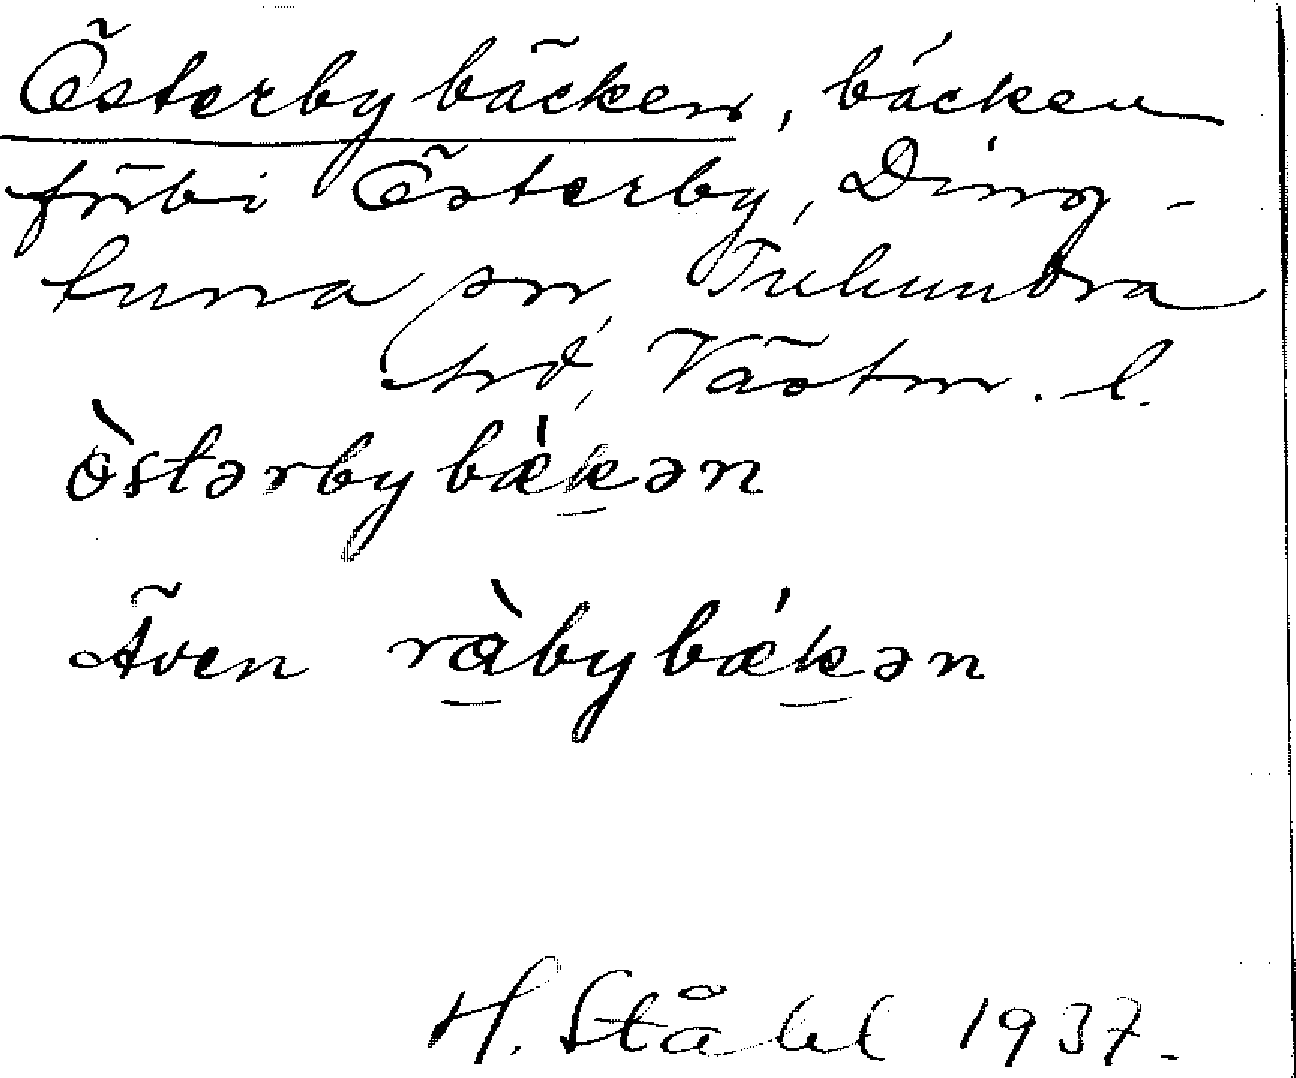 Österbybäcken, bäcken
förbi Österby, Ding-
tuna sn, Tuhundra
hd, Västm. l.
òstərbybǽkən
Även ràbybǽkən
H. Ståhl 1937.